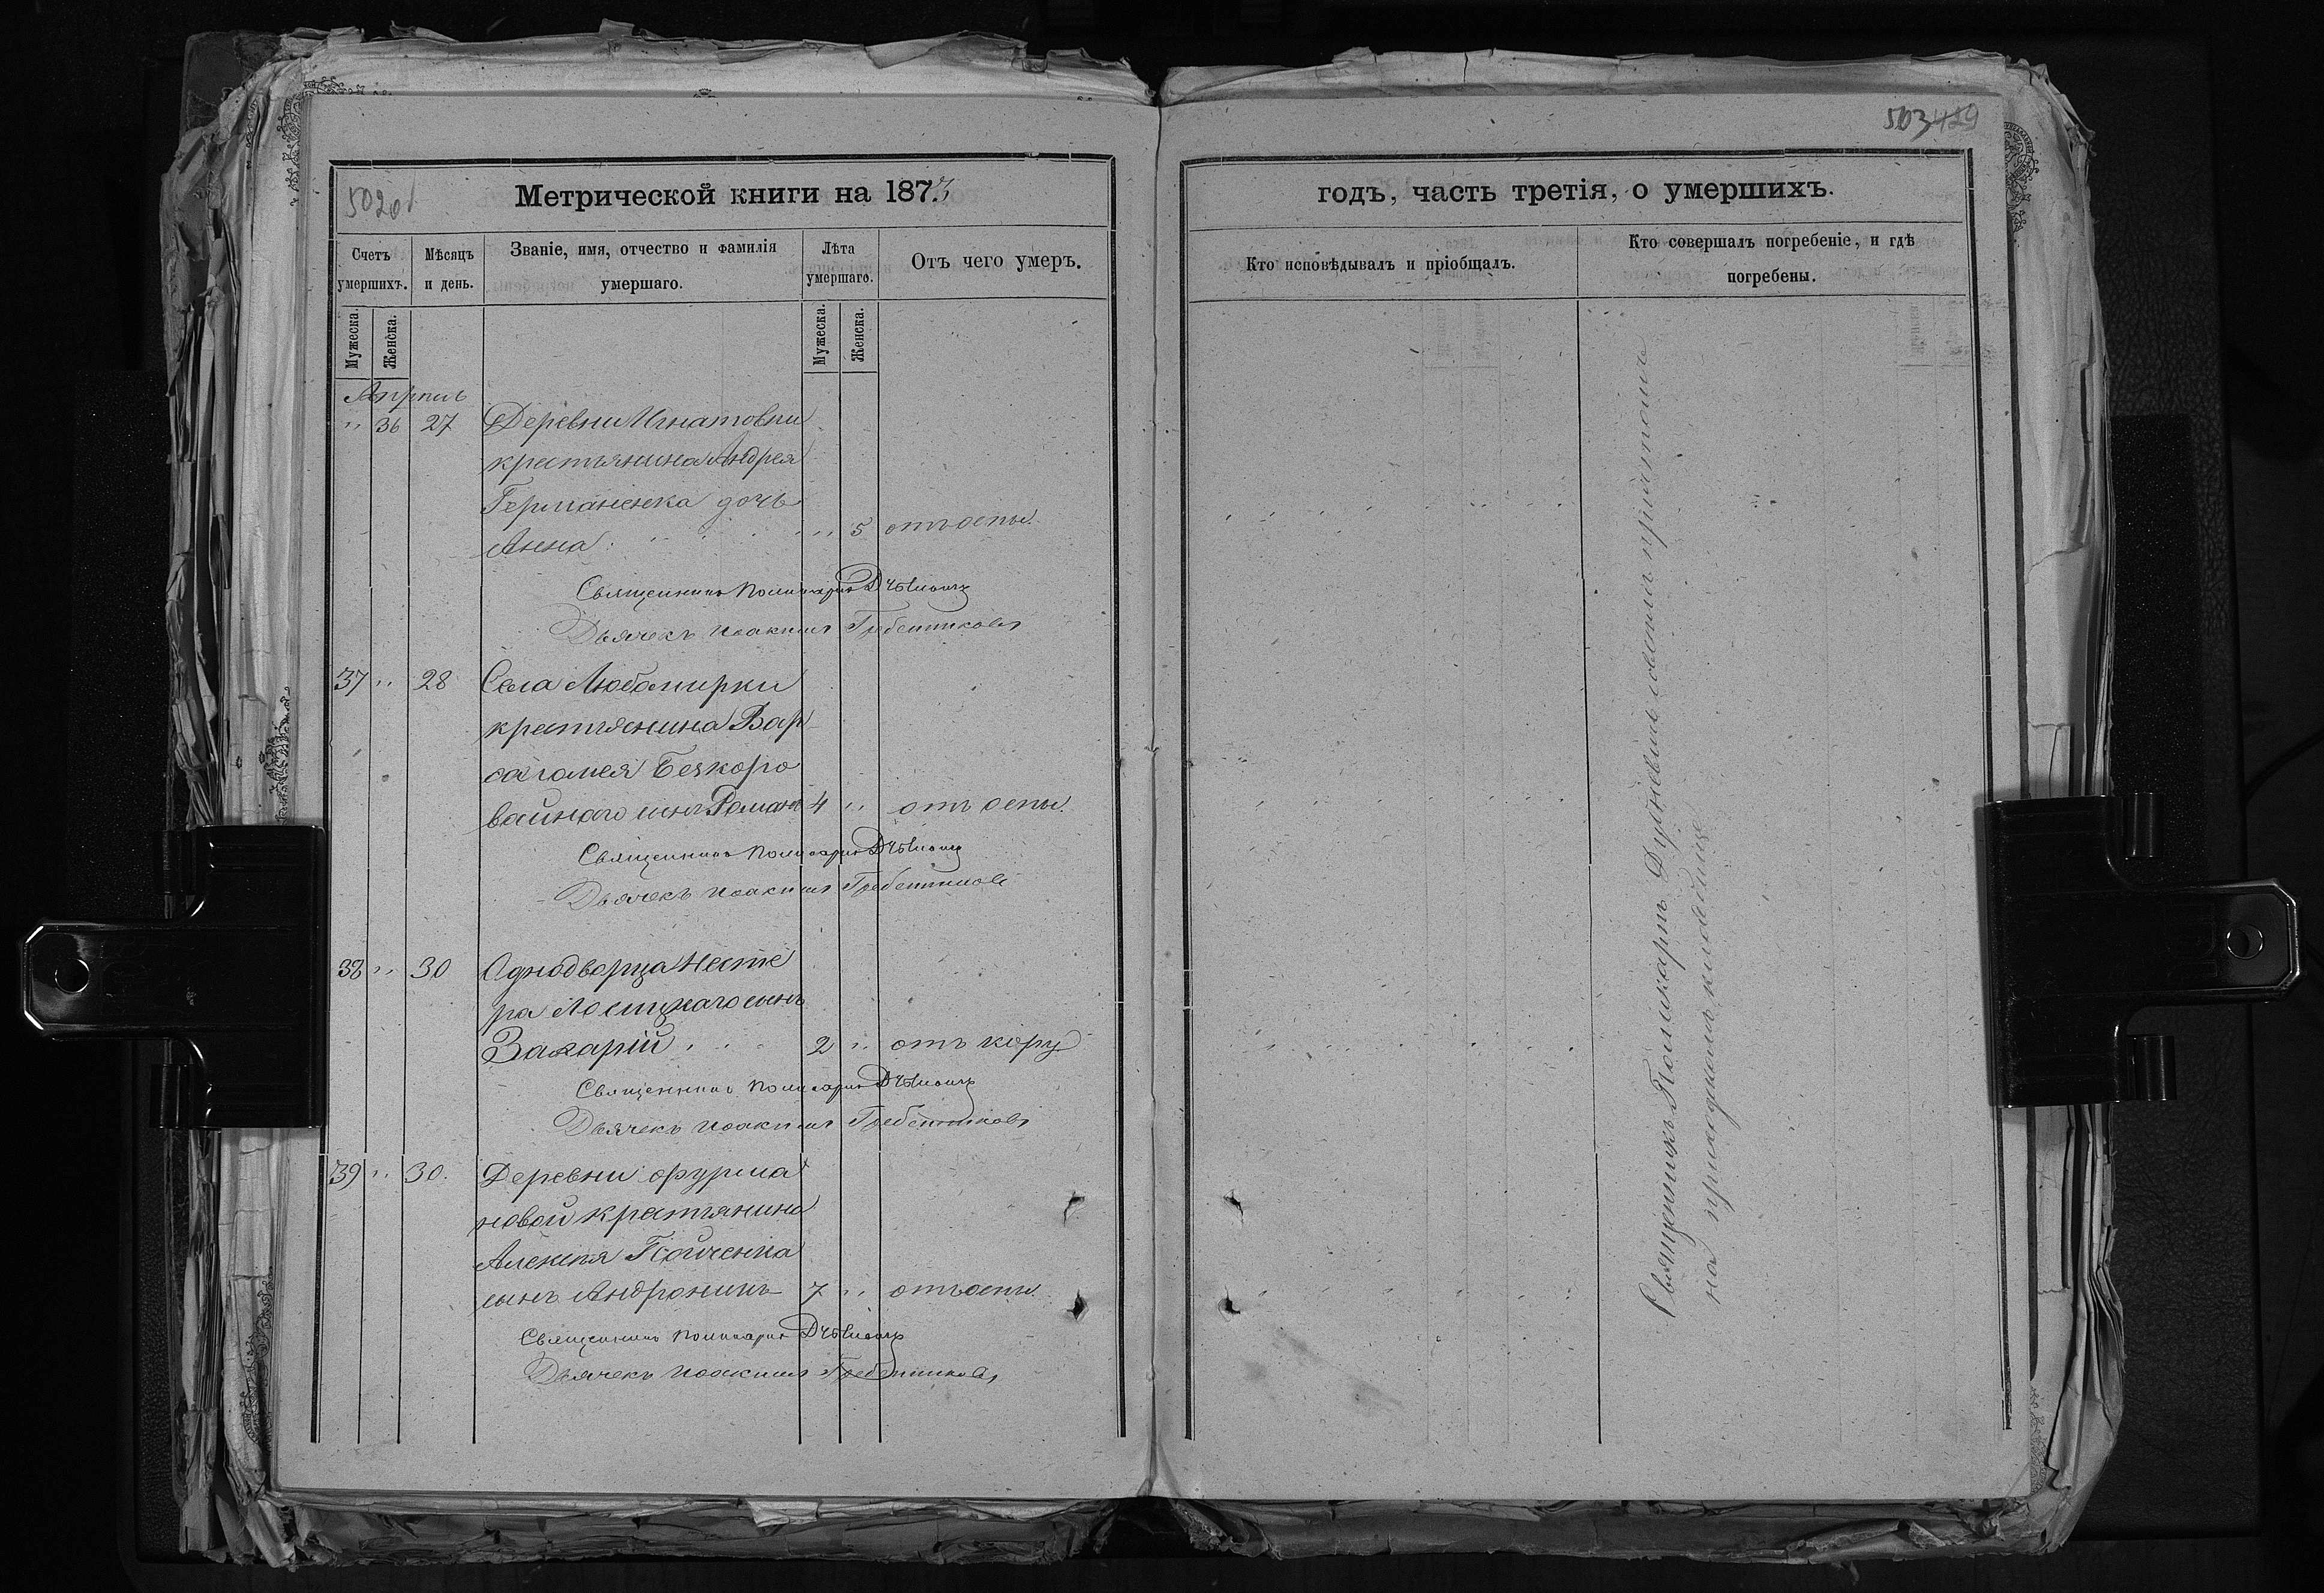 503 429
502об
Метрической книги на 1873
годъ, часть третія, о умершихъ.
Счетъ умершихъ.
Мѣсяцъ и день.
Званіе, имя, отчество и фамилія умершаго.
Лѣта умершаго.
Отъ чего умеръ.
Кто исповѣдывалъ и пріобщалъ.
Кто совершалъ погребеніе, и гдѣ погребены.
Мужеска.
Женска.
Мужеска.
Женска.
Апрѣль
" 36 27 Деревни Игнатовки
крестьянина Андрея
Германенка дочь
Анна " 5 отъ оспы.
Священникъ Поликарпъ
Дьячекъ Іоакимъ Гребенниковъ
37 " 28 Села Любомирки
крестьянина Вар
ѳаломея Безкоро
вайнаго сынъ Романъ 4 " отъ оспы.
Священникъ Поликарпъ
Дьячекъ Іоакимъ Гребенниковъ
38 " 30 Однодворца Несте
ра сынъ
Захарій 2 " отъ кору
Священникъ Поликарпъ
Дьячекъ Іоакимъ Гребенниковъ
39 " 30. Деревни Фурма
новой крестьянина
Алексѣя сынъ Андроникъ 7 " отъ оспы
Священникъ Поликарпъ
Дьячекъ Іоакимъ Гребенниковъ
Священникъ Поликарпъ съ причтомъ
на приходскомъ кладбище